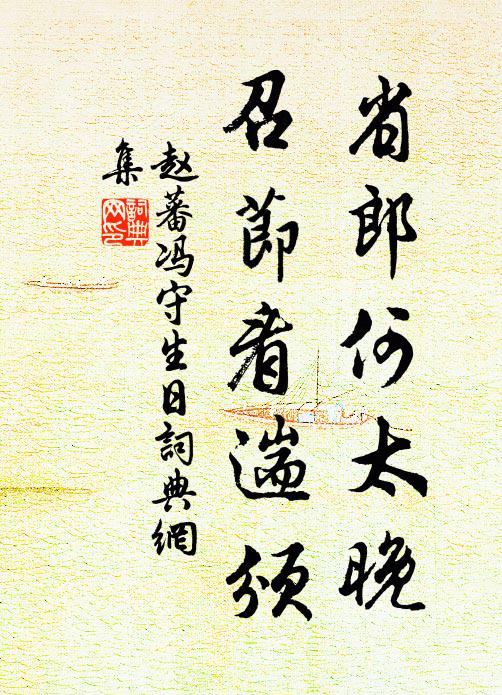 省郎何太晚
召節看遄頒
赵蕃冯守生日詞典網
集
詞典
网印